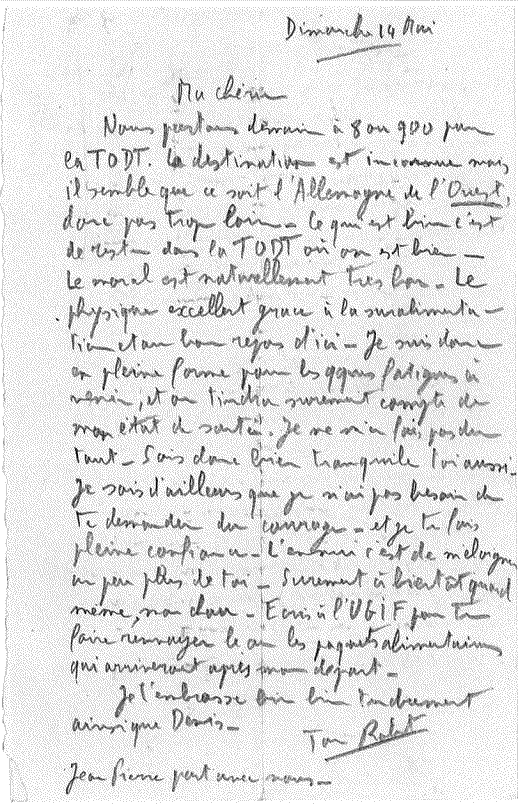 Dimanche 14 Mai
Ma chérie
Nous partons demain à 8 ou 900 pour
la TODT. La destination est inconnue mais
il semble que ce soit l'Allemagne de l'Ouest,
donc pas trop loin - Ce qui est bien c'est
de rester dans la TODT où on est bien -
Le moral est naturellement très bon - Le
physique excellent grace à la suralimenta-
tion et au bon repos d'ici - Je suis donc
en pleine forme pour les qques fatigues à
venir, et on tiendra surement compte de
mon état de santé. Je ne m'en fais pas du
tout - Sois donc bien tranquile toi aussi.
Je sais d'ailleurs que je n'ai pas besoin de
te demander du courage - et je te fais
pleine confiance - L'ennui c'est de m'éloigner
un peu plus de toi - Surement à bientôt quand
même, mon chou - Ecris à l'UGIF pour te
faire renvoyer le ou les paquets alimentaires
qui arriveront après mon départ -
Je t'embrasse bien tendrement
ainsi que Denis -
Ton Robert
Jean Pierre part avec nous -